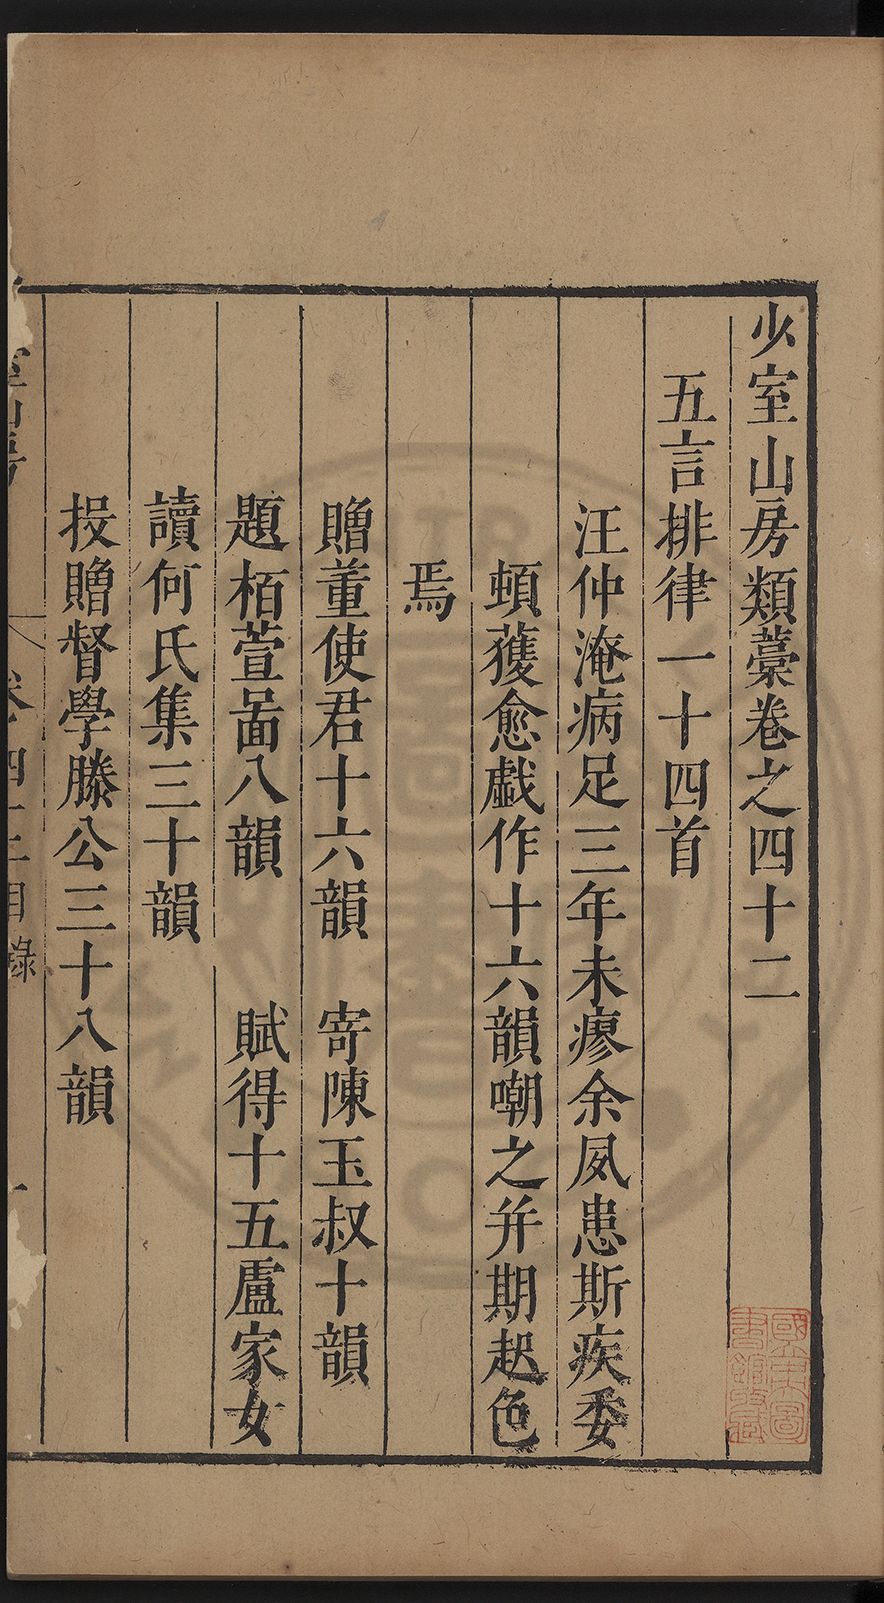 少室山房類藁卷之四十二
五言排律一十四首
汪仲淹病足三年未瘳余夙患斯疾委
頓獲愈戱作十六韻嘲之并期起色
焉
贈董使君十六韻　寄陳玉叔十韻
題栢萱啚八韻　賦得十五盧家女
讀何氏集三十韻
投贈督學滕公三十八韻
室山房
卷四十二目錄
一